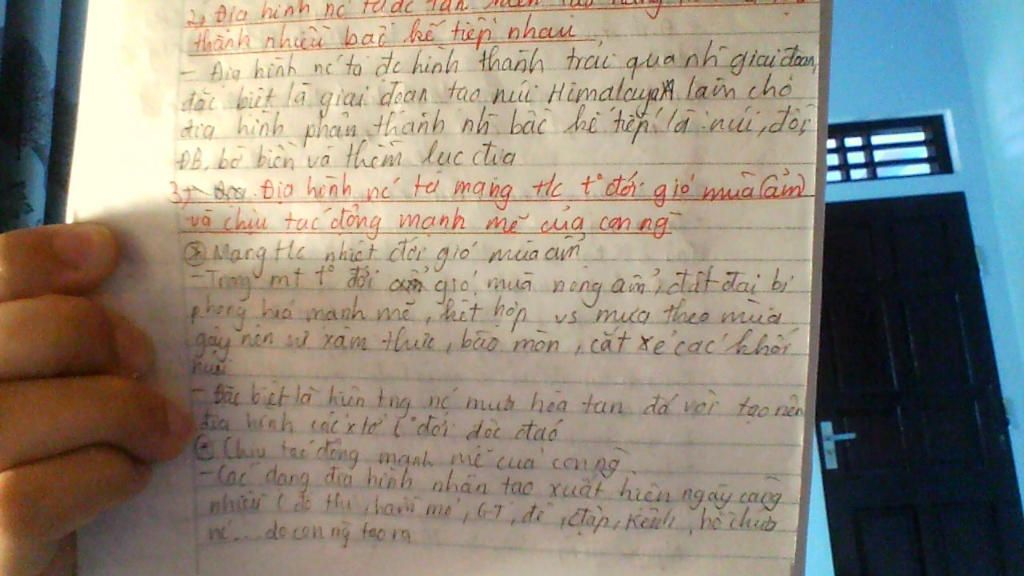 2, Địa hình nc ta đc tân
thành nhiều bậc kế tiếp nhau
- Địa hình nc ta đc hình thành trải qua nh giai đoạn,
đặc biệt là giai đoạn tạo núi Himalaya làm cho
địa hình phân thành nh bậc kế tiếp là núi, đồi,
ĐB, bờ biển và thềm lục địa
3, Địa hình nc ta mang t/c t° đới gió mùa (ẩm)
và chịu tác động mạnh mẽ của con ng
Mang t/c nhiệt đới gió mùa ẩm
- Trong mt t° đới gió mùa nóng ẩm, đất đai bị
phong hoá mạnh mẽ, kết hợp vs mưa theo mùa
gây nên sự xâm thực, bào mòn, cắt xẻ các khối
núi
- Đặc biệt là hiện tng nc mưa hòa tan đá vôi tạo nên
địa hình cácxtơ t° đới độc đáo
Chịu tác động mạnh mẽ của con ng
- Các dạng địa hình nhân tạo xuất hiện ngày càng
nhiều (đô thị, hầm mỏ, GT, đê, đập, kênh, hồ chứa
nc... do con ng tạo ra